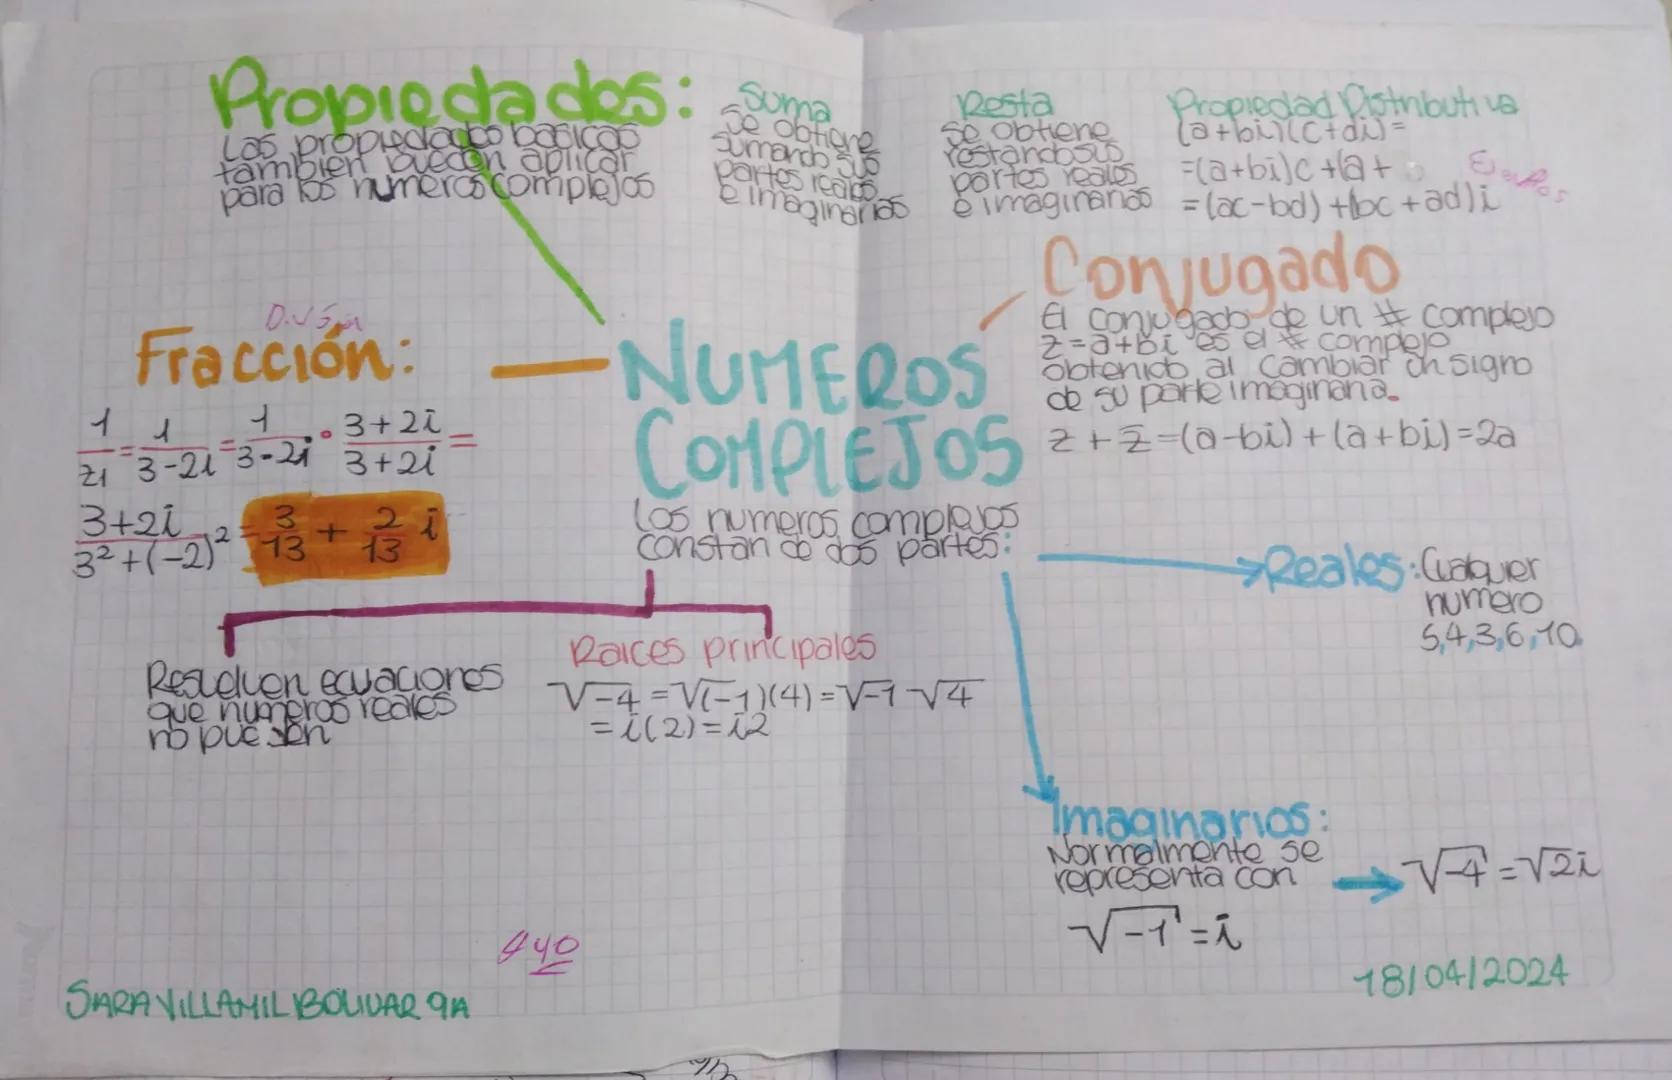 Propiedades:
Las propiedades basicas
tambien pueden aplicar
para los numeros complejos
Suma
Se obtiene
sumando sus
partes reales
e imaginarias
Resta
se obtiene
restando sus
partes reales
e imaginarias
Propiedad Distributiva
(a+bi)(c+di)=
=(a+bi)c+(a+
=(ac-bd)+(bc+ad)i
Conjugado
El conjugado de un # complejo
z=a+bi es el # compejo
obtenido al cambiar un signo
de su parte imaginaria.
z+z̅=(a-bi)+(a+bi)=2a
Fracción:
1/z1=1/3-2i=1/3-2i•3+2i/3+2i=
3+2i/3²+(-2)²=3/13+2/13 i
NUMEROS
COMPLEJOS
Los numeros complejos
constan de dos partes:
Reales: Cualquier
numero
5,4,3,6,10
Resuelven ecuaciones
que numeros reales
no pueden
Raices principales
√-4=√(-1)(4)=√-1 √4
=i(2)=i2
Imaginarios:
Normalmente se
representa con
√-1=i
√-4=√2i
SARA VILLAMIL BOLIVAR 9A
18/04/2024